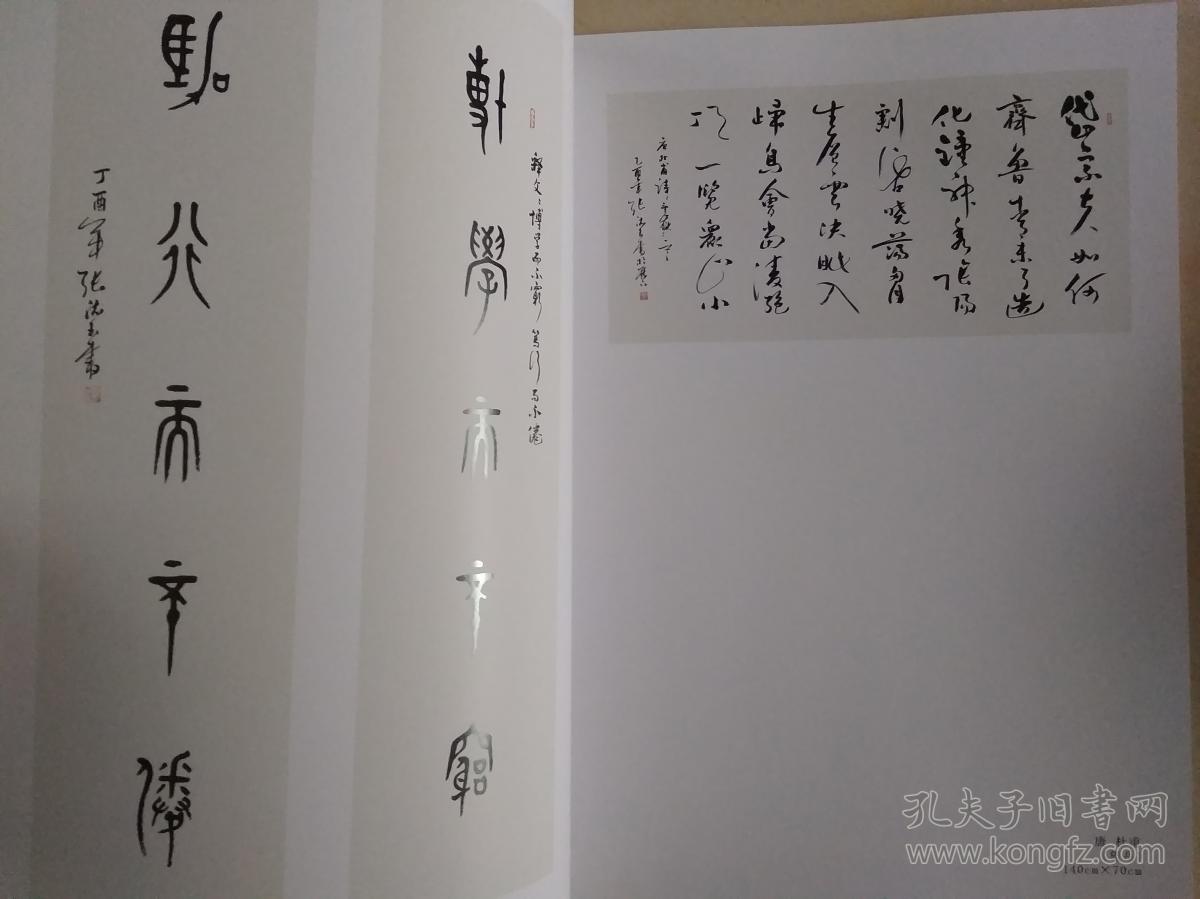 博學而不窮
釋文：博学而不窮 篤行而不倦
篤行而不倦
丁酉年張
岱宗夫如何
齊魯青未了造
化鍾神秀陰陽
割昏曉蕩胸
生層雲決眥入
歸鳥會當凌絕
頂一覽眾山小
唐杜甫詩
乙酉年張
唐 杜甫
140cm×70cm
孔夫子旧書网
www.kongfz.com